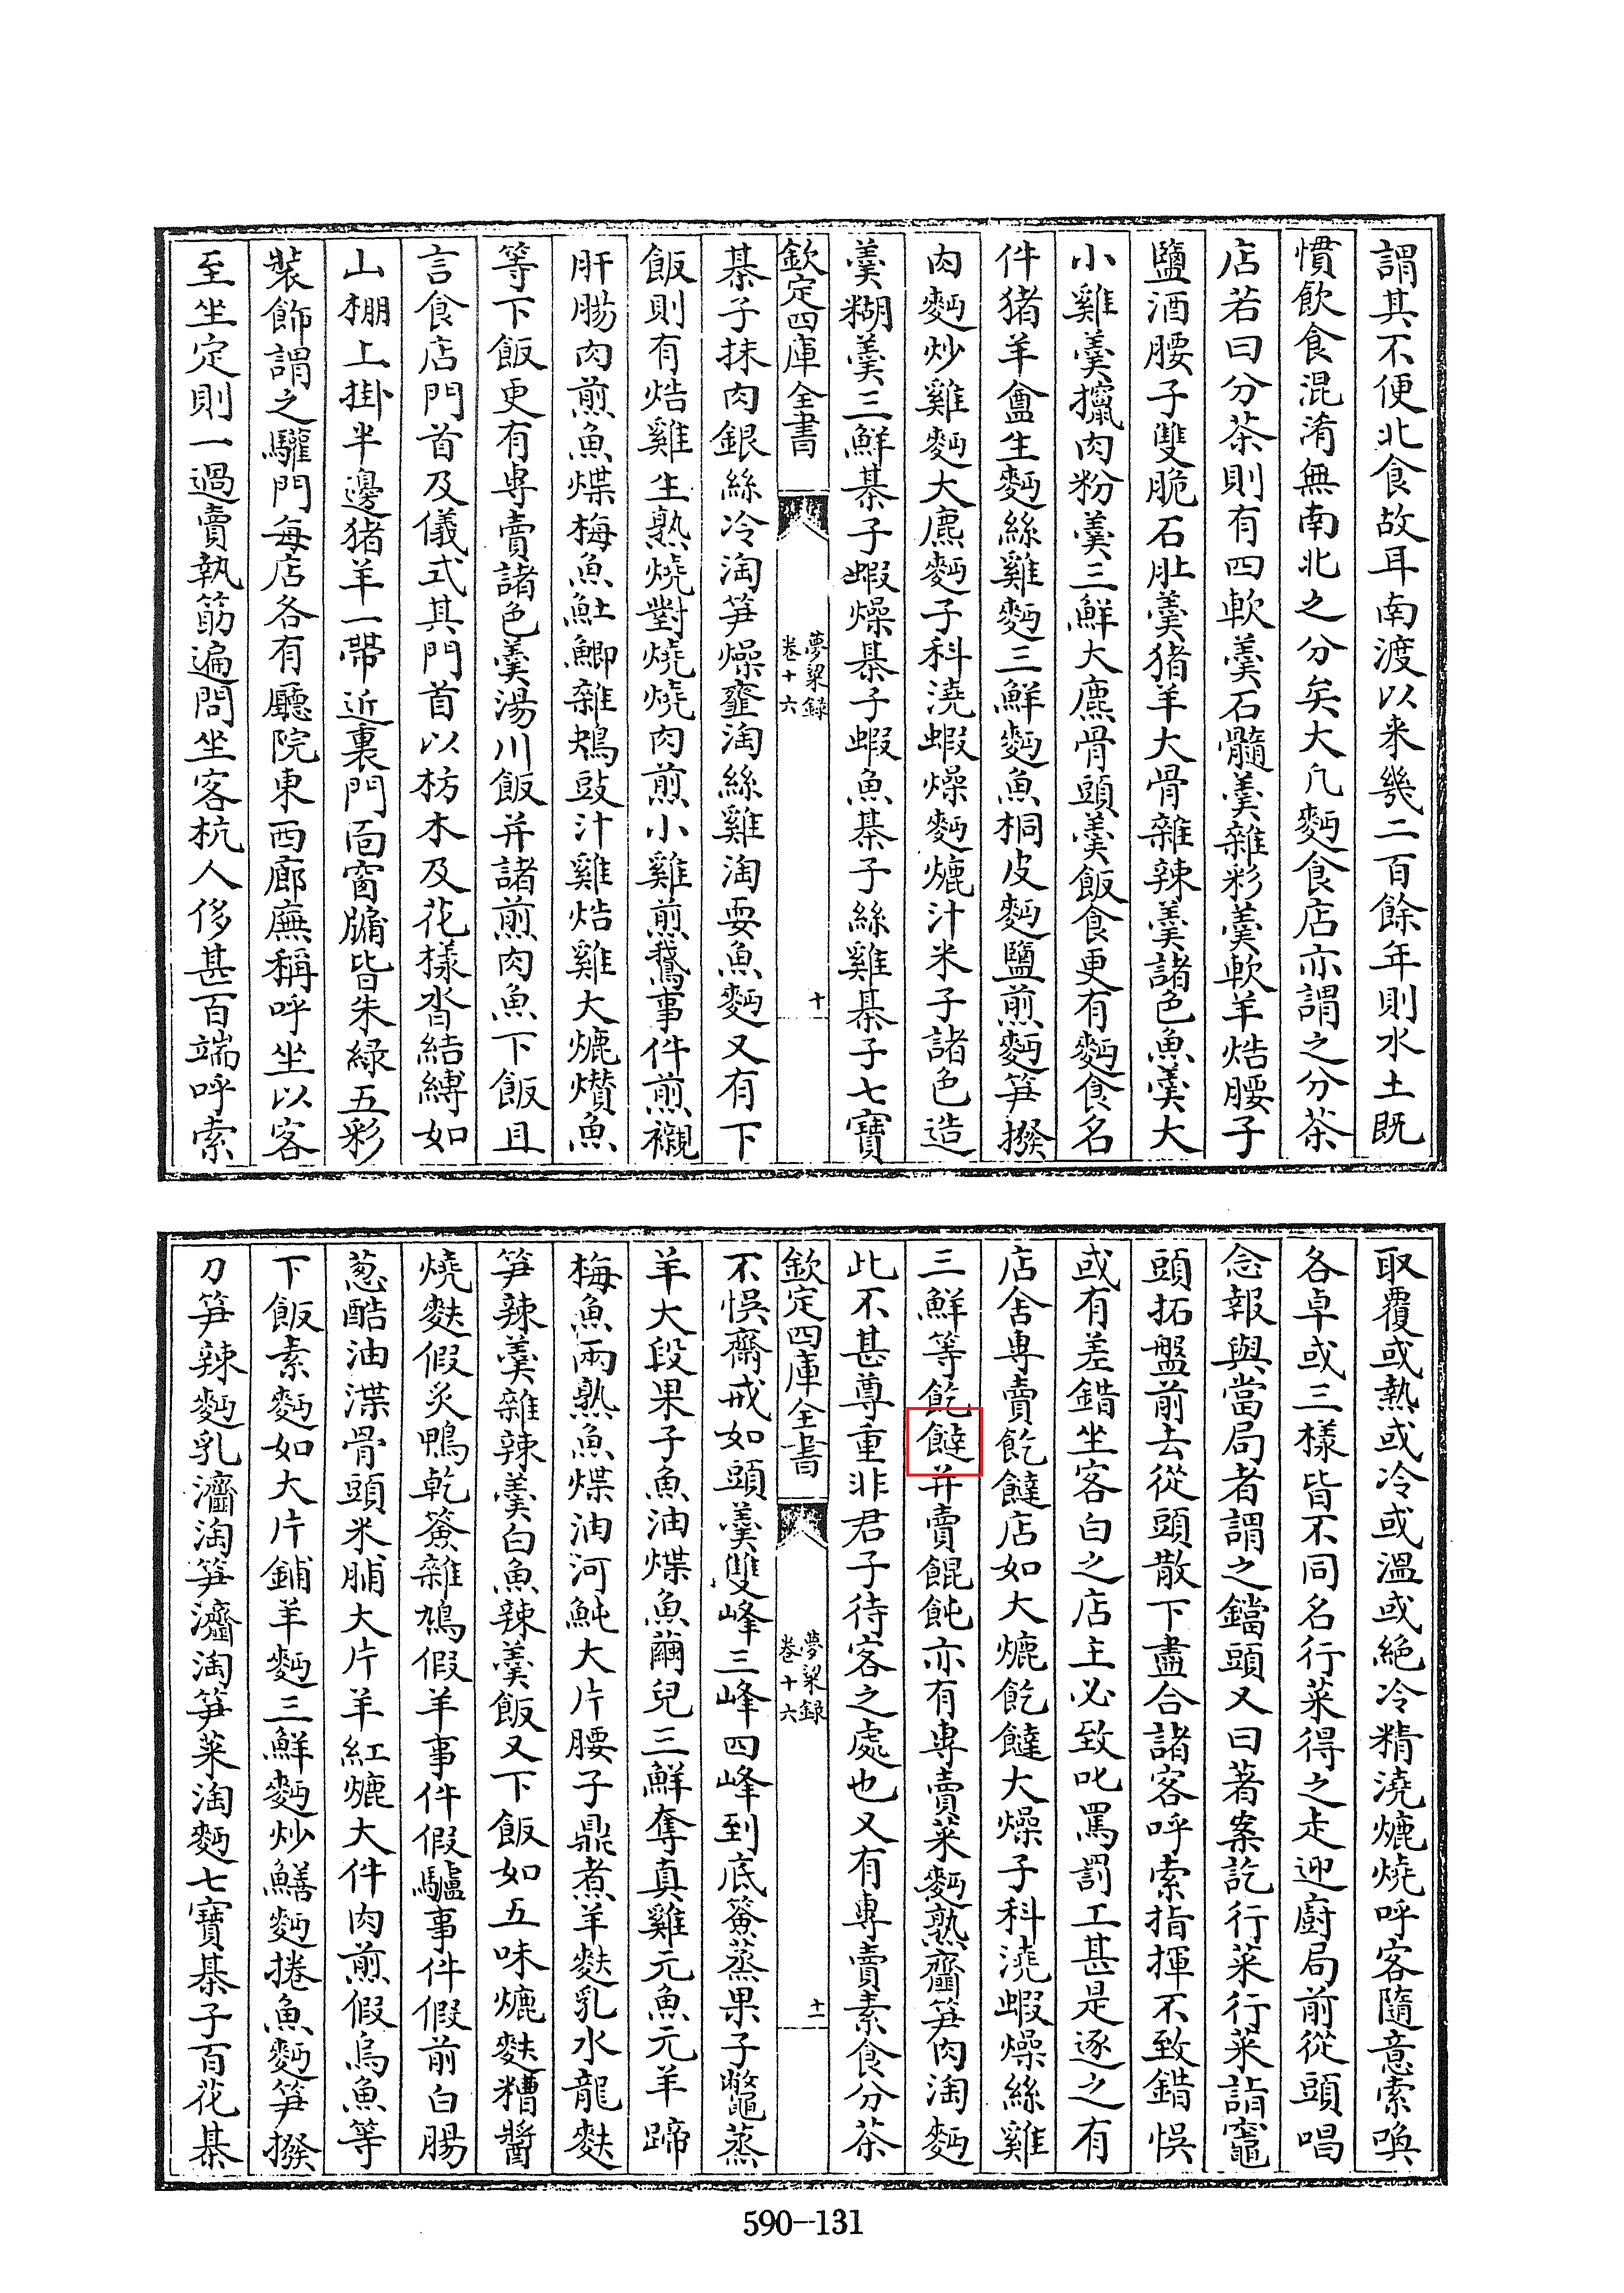 謂其不便北食故耳南渡以来幾二百餘年則水土既
慣飲食混淆無南北之分矣大凡麪食店亦謂之分茶
店若曰分茶則有四軟羮石髓羮雜彩羮軟羊焅腰子
鹽酒腰子雙脆石肚羮猪羊大骨雜辣羮諸色魚羮大
小雞羮攛肉粉羮三鮮大熝骨頭羮飯食更有麪食名
件猪羊盦生麪絲雞麪三鮮麪魚桐皮麪鹽煎麪笋撥
肉麪炒雞麪大熬麪子科澆蝦燥麪熝汁米子諸色造
羮糊羮三鮮棊子蝦燥棊子蝦魚棊子絲雞棊子七寶
欽定四庫全書
夢粱録
卷十六
十
棊子抹肉銀絲冷淘笋燥虀淘絲雞淘耍魚麪又有下
飯則有焅雞生熟燒對燒燒肉煎小雞煎鵞事件煎襯
肝腸肉煎魚煠梅魚䰵鯽雜鴆豉汁雞焅雞大熝爊魚
等下飯更有専賣諸色羮湯川飯并諸煎肉魚下飯且
言食店門首及儀式其門首以枋木及花樣沓結縛如
山棚上掛半邊猪羊一帶近裏門面窗牖皆朱緑五彩
裝飾謂之驩門每店各有廳院東西廊廡稱呼坐以客
至坐定則一過賣執筯遍問坐客杭人侈甚百端呼索
取覆或熱或冷或温或絶冷精澆熝燒呼客隨意索喚
各卓或三樣皆不同名行菜得之走迎廚局前從頭唱
念報與當局者謂之鐺頭又曰著案訖行菜行菜詣竈
頭拓盤前去從頭散下盡合諸客呼索指揮不致錯悮
或有差錯坐客白之店主必致叱罵罰工甚是逐之有
店舍専賣飥饠店如大熝飥饠大燥子科澆蝦燥絲雞
三鮮等飥饠并賣餛飩亦有専賣菜麪熟齏笋肉淘麪
此不甚尊重非君子待客之處也又有専賣素食分茶
欽定四庫全書
夢粱録
卷十六
十一
不悮齋戒如頭羮雙峰三峰四峰到底籖蒸果子鼈蒸
羊大段果子魚油煠魚繭兒三鮮奪真雞元魚元羊蹄
梅魚兩熟魚煠油河魨大片腰子鼎煮羊麩乳水龍麩
笋辣羮雜辣羮白魚辣羮飯又下飯如五味熝麩糟醬
燒麩假炙鴨乾籖雜鳩假羊事件假驢事件假煎白腸
葱醋油渫骨頭米脯大片羊紅熝大件肉煎假烏魚等
下飯素麪如大片鋪羊麪三鮮麪炒鱔麪捲魚麪笋撥
刀笋辣麪乳齏淘笋齏淘笋菜淘麪七寶棊子百花棊
590-131